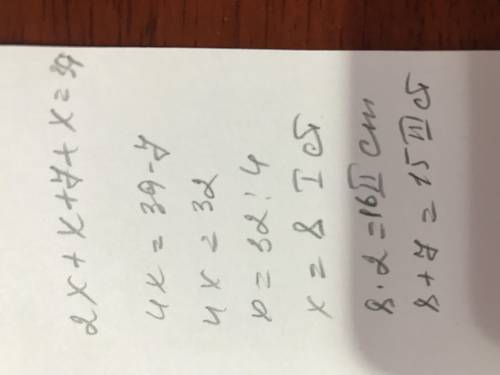 2x + x + 7 + x = 39
4x = 39 - 7
4x = 32
x = 32 : 4
x = 8 I
8 · 2 = 16 II
8 + 7 = 15 III